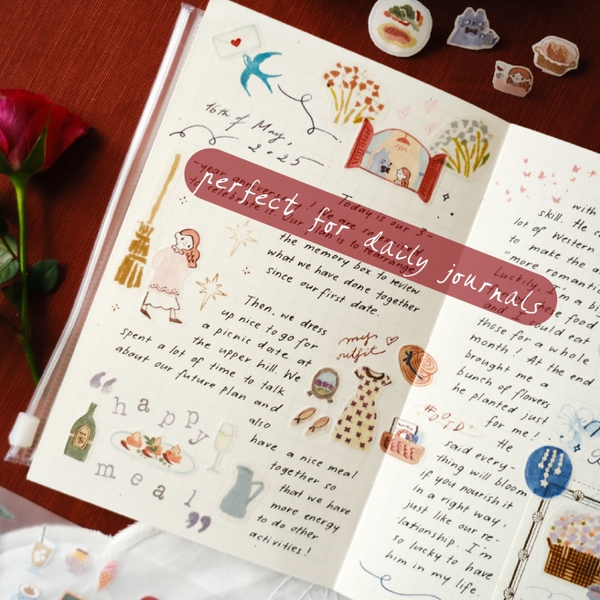 16th of May,
2025
Today is our 3-
-year anniversary! We are so
to celebrate it. Our plan is to rearrange
the memory box to review
what we have done together
since our first date.
Then, we dress
up nice to go for
a picnic date at
the upper hill. We
spent a lot of time to talk
about our future plan and
also
have a nice meal
together so
that we have
more energy
to do other
activities!
my
outfit
“happy
meal”
perfect for daily journals
with
skill. He
lot of Western
to make the
"more romantic
Luckily, I'm a
food
and could eat
these for a whole
month! At the end
brought me a
bunch of flowers
he planted just
for me!
#OOTD
He
said every-
thing will bloom
if you nourish it
in a right way,
just like our re-
lationship. I'm
so lucky to have
him in my life.